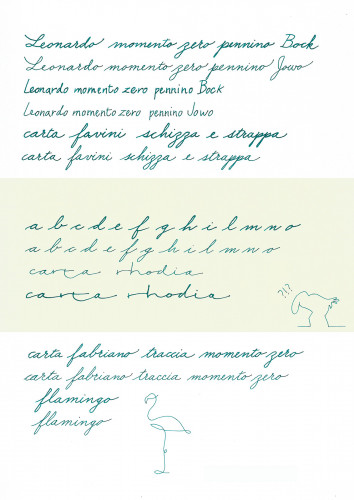 Leonardo momento zero pennino Bock
Leonardo momento zero pennino Jowo
Leonardo momento zero pennino Bock
Leonardo momento zero pennino Jowo
carta favini schizza e strappa
carta favini schizza e strappa
a b c d e f g h i l m n o
a b c d e f g h i l m n o
carta rhodia
carta rhodia
?!?
carta fabriano traccia momento zero
carta fabriano traccia momento zero
flamingo
flamingo